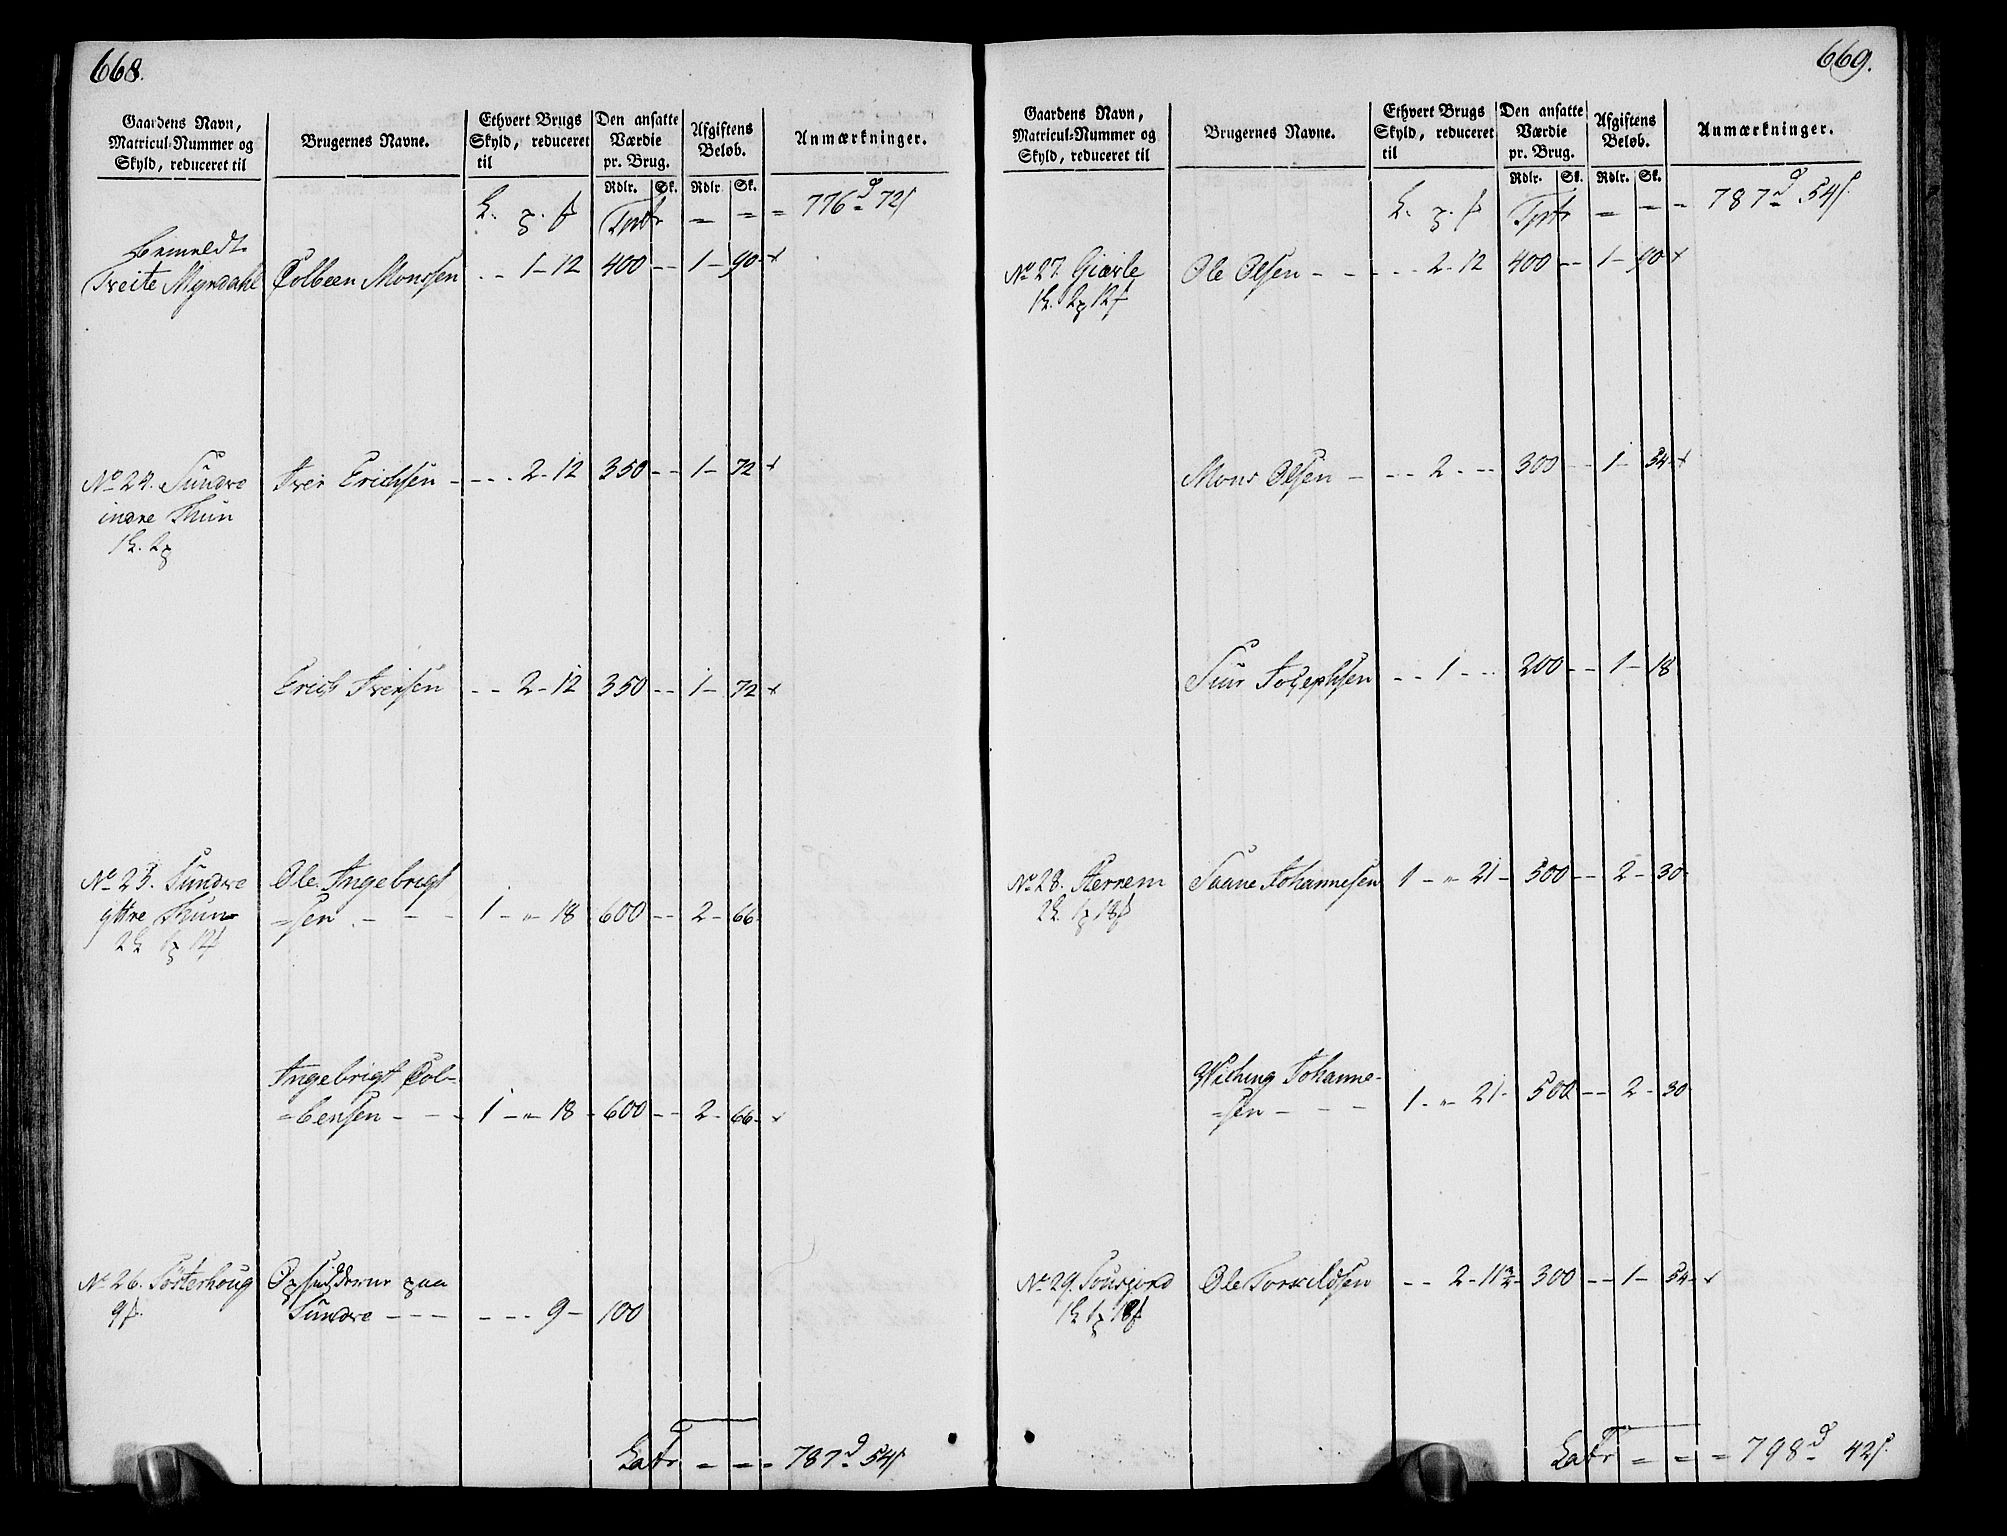 668.
Gaardens Navn,
Matricul-Nummer og
Skyld, reduceret til
Brugernes Navne.
Ethvert Brugs
Skyld, reduceret
til
Den ansatte
Værdie
pr. Brug.
Rdlr. Sk.
Afgiftens
Beløb.
Rdlr. Sk.
Anmærkninger.
Tptr = = = 776 72
Bemeldt
Tveite Myrdahl Colbeen Monssen - - 1-12 400 -- 1-90
No 24. Sundve Iver Erichsen - - - - 2-12 350 -- 1-72
indre Thun
Erich Iversen - - 2-12 350 -- 1-72
No 25. Sundve Ole Ingebrigt
yttre Thun =sen - - - 1 - " 18 600 -- 2-66
Ingebrigt Col-
=bensen - - - 1 - " 18 - 600 -- 2-66
No 26. Sösterhoug Opsidderne paa
Sundve - - - - - - 9 - 100
Latr = = = 787 54
669.
Gaardens Navn,
Matricul-Nummer og
Skyld, reduceret til
Brugernes Navne.
Ethvert Brugs
Skyld, reduceret
til
Den ansatte
Værdie
pr. Brug.
Rdlr. Sk.
Afgiftens
Beløb.
Rdlr. Sk.
Anmærkninger.
Tptr = = = 787 54
No 27. Giærle Ole Olsen - - - - - 2-12 400 -- 1-90
Mons Olsen - - - 2 - - - 300 -- 1-54
Siur Josephsen - - 1 - - - 200 -- 1-18
No 28. Hernem Saave Johannesen 1 - " 21 - 500 -- 2-30
Wiching Johanne-
=sen - - - 1 - " 21 - 500 -- 2-30
No 29. Ole Torkildsen - - 2-11 - 300 -- 1-54
Latr = = = 798 42